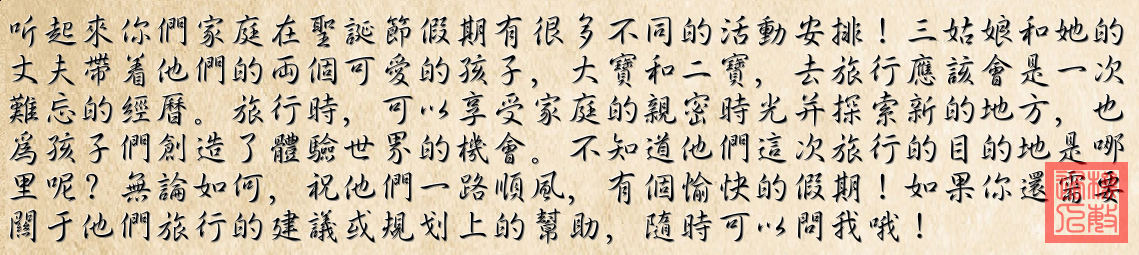 听起來你們家庭在聖誕節假期有很多不同的活動安排！三姑娘和她的
丈夫帶着他們的両個可愛的孩子，大寶和二寶，去旅行應該會是一次
難忘的經曆。旅行時，可以享受家庭的親密時光并探索新的地方，也
爲孩子們創造了體驗世界的機會。不知道他們這次旅行的目的地是哪
里呢？無論如何，祝他們一路順風，有個愉快的假期！如果你還需要
關于他們旅行的建議或規划上的幫助，隨時可以問我哦！